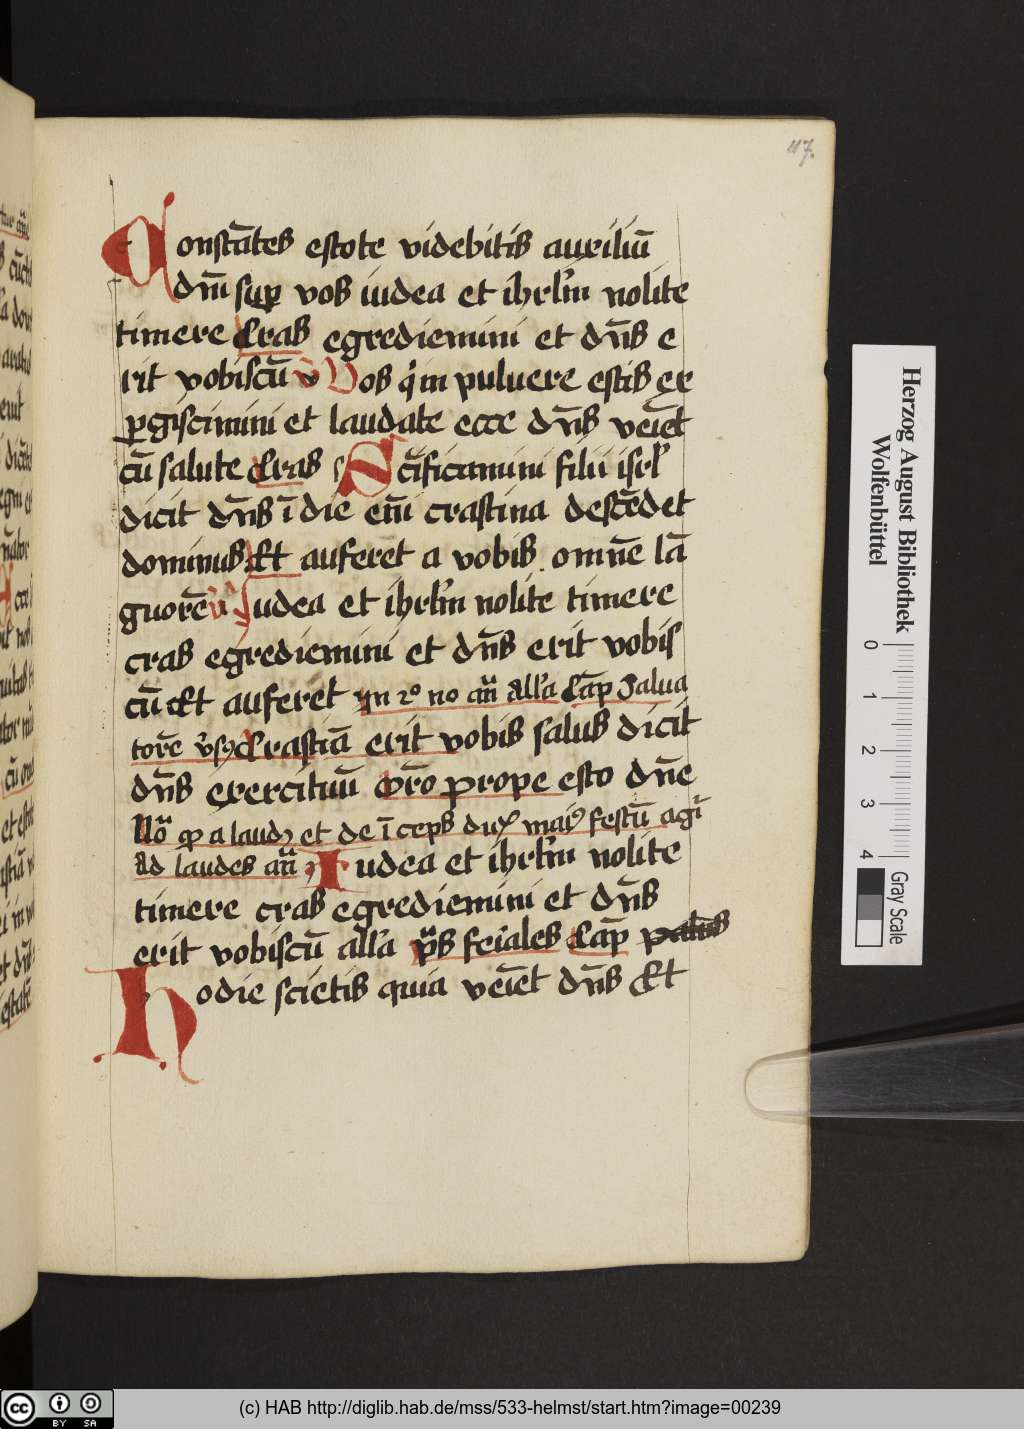 117.
Constātes estote videbitis auxiliū
dn̄i sup̱ vos iudea et ihrl'm nolite
timere Cras egrediemini et dn̄s e
rit vobiscū v̄ Vos q̇ in puluere estis ex
p̱giscimini et laudate ecce dn̄s veīet
cū salute Cras Sc̄ificamini filii isrl'
dicit dn̄s ī die em̄ crastina descēdet
dominus Et auferet a vobis omnē lā
guorē v̄ Iudea et ihrl'm nolite timere
cras egrediemini et dn̄s erit vobis
cū Et auferet yn no an̄ All'a Cap̄ Salua
torē Crastīa erit vobis salus dicit
dn̄s exercituū Or̄o prope esto dn̄e
a laud et de īceps festū agi
Ad laudes an̄ Iudea et ihrl'm nolite
timere cras egrediemini et dn̄s
erit vobiscū all'a p̄s feiales Cap̄
Hodie scietis quia veīet dn̄s Et
Herzog August Bibliothek
Wolfenbüttel
0 1 2 3 4
Gray Scale
cc BY SA
(c) HAB http://diglib.hab.de/mss/533-helmst/start.htm?image=00239